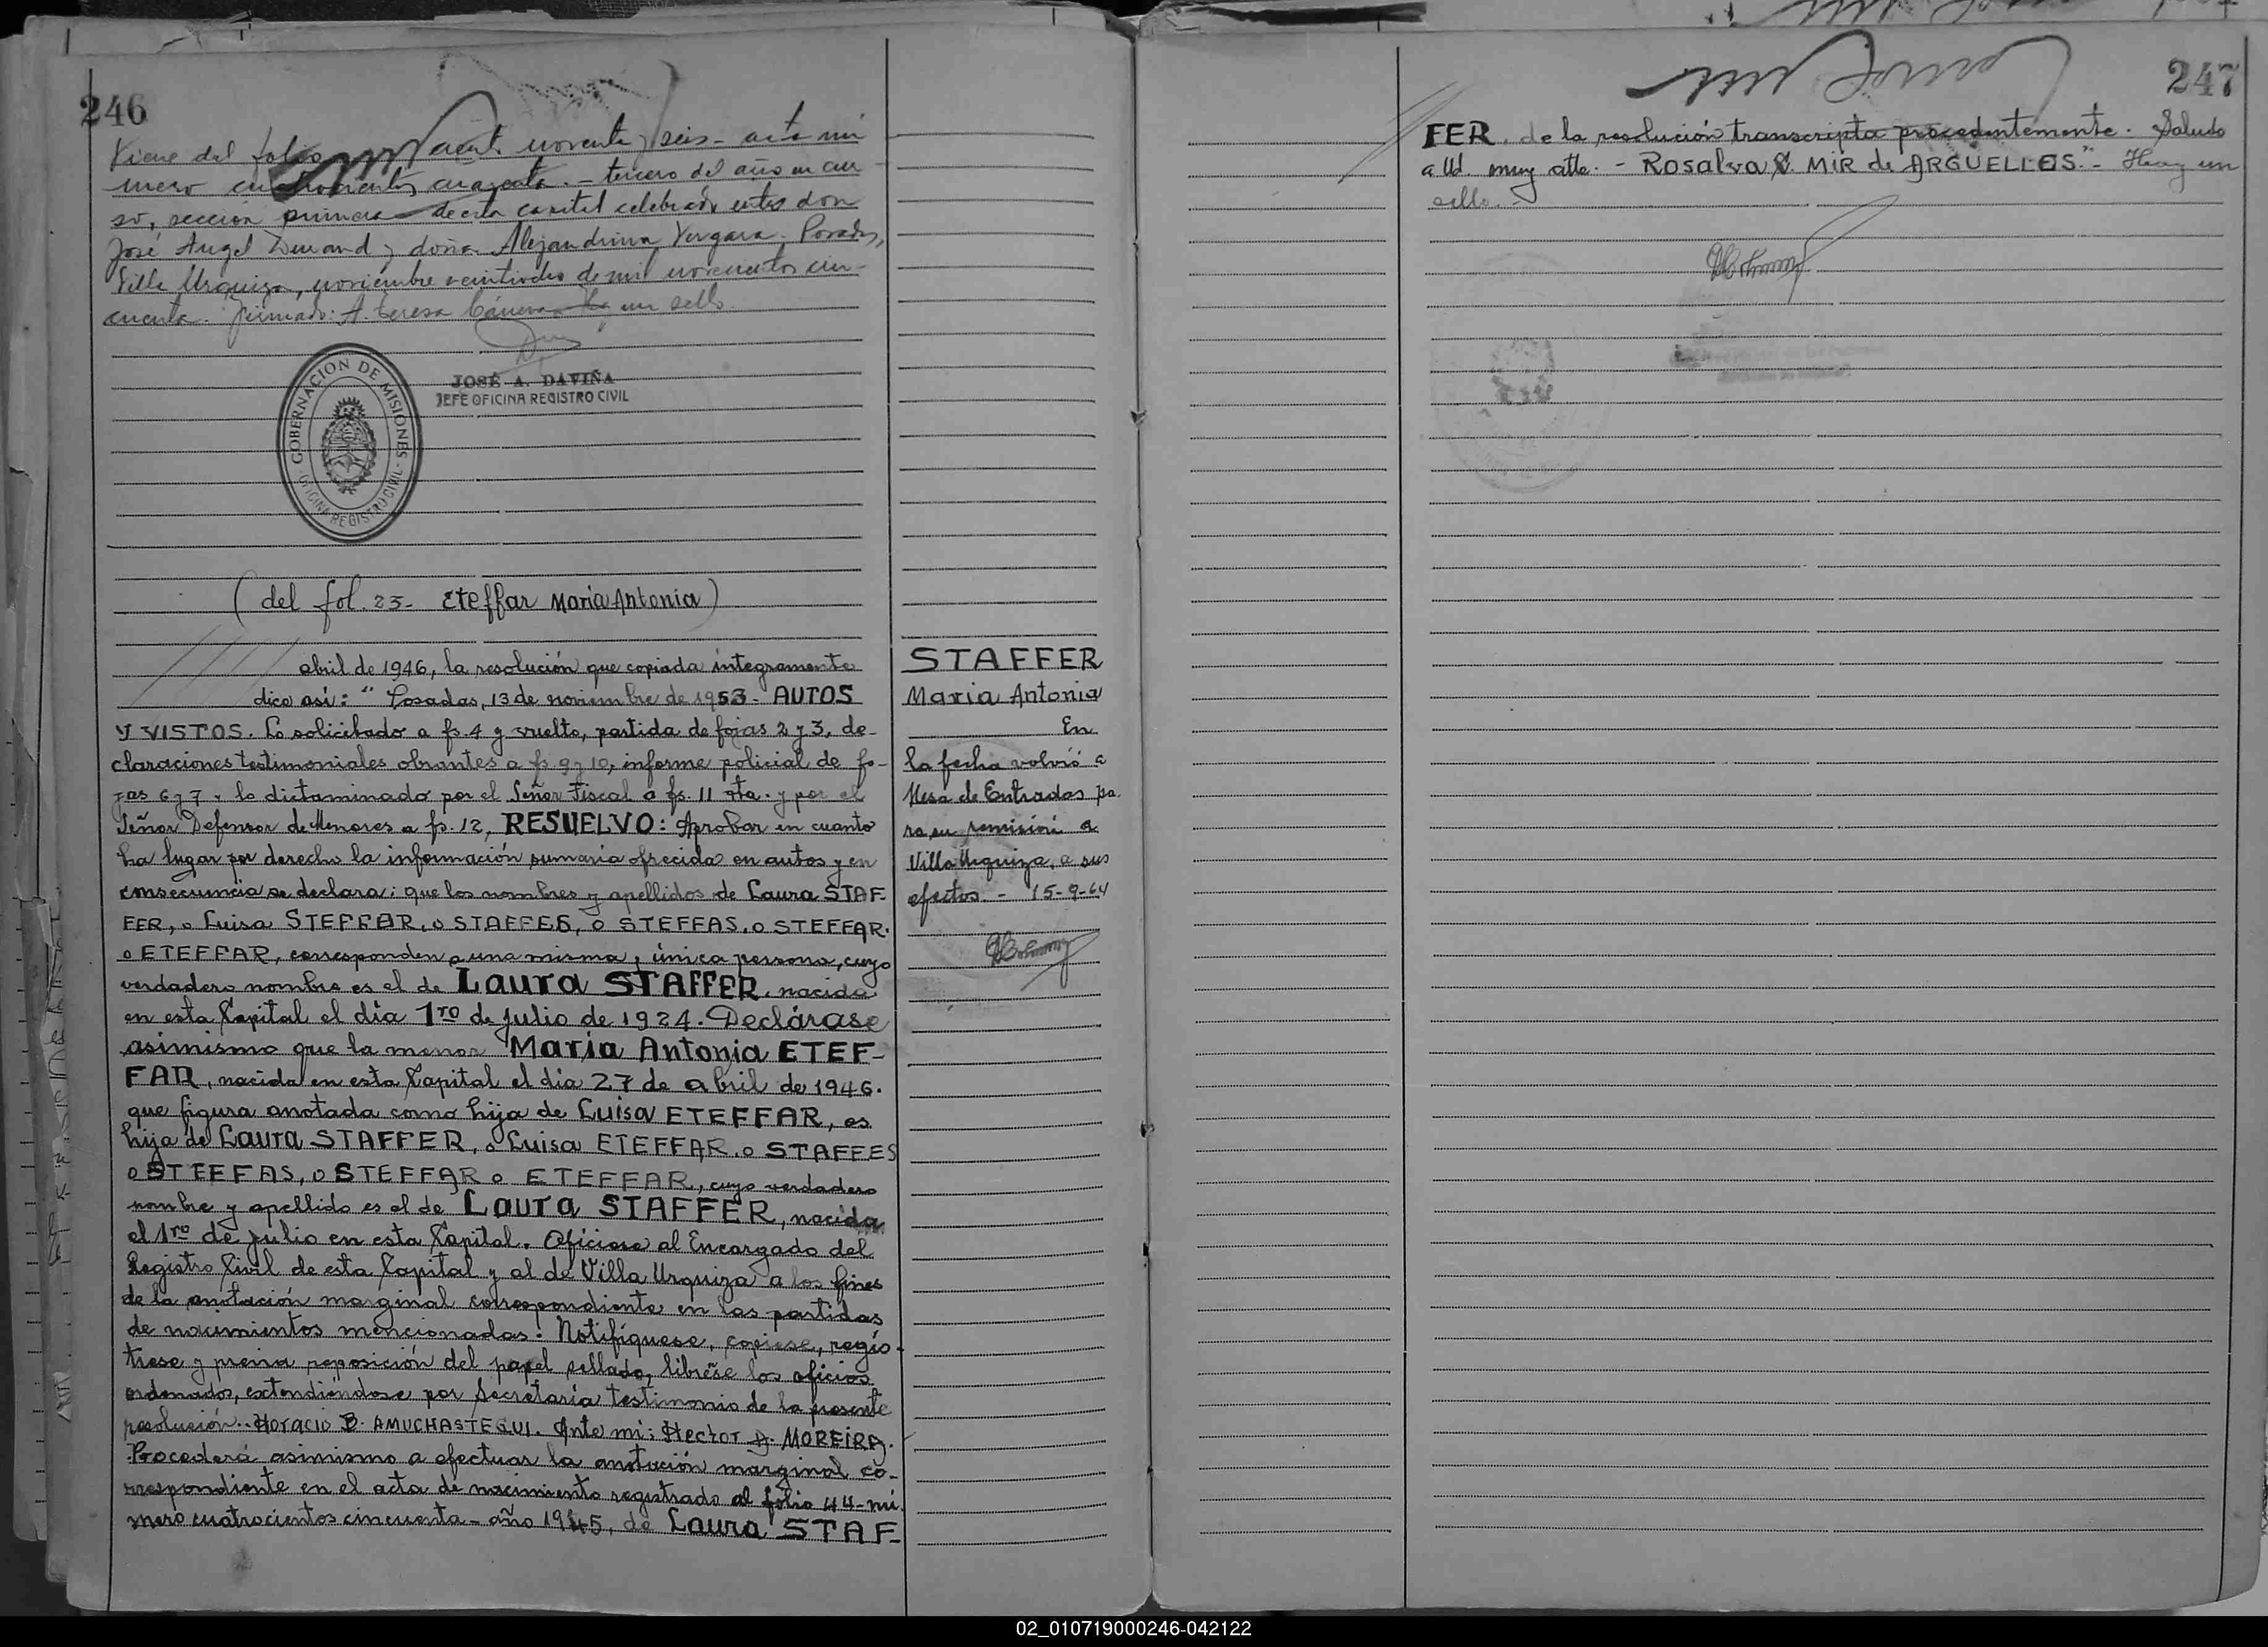 246
Viene del folio ciento noventa y seis - acta nú
mero cuatrocientos cuarenta. - tercero del año en cur
so, sección primera de esta capital celebrado entre don
José Angel Durand y doña Alejandrina Vergara. Posadas,
Villa Urquiza, noviembre veintidos de mil novecientos cin-
cuenta. Firmado: A. Teresa Hay un sello.
JOSÉ A. DAVIÑA
JEFE OFICINA REGISTRO CIVIL
GOBERNACION DE MISIONES
OFICINA REGISTRO CIVIL
(del fol. 23- Eteffar Maria Antonia)
abril de 1946, la resolución que copiada íntegramente
dice así: " Posadas, 13 de noviembre de 1953 - AUTOS
Y VISTOS. Lo solicitado a fs. 4 y vuelto, partida de fojas 2 y 3, de-
claraciones testimoniales obrantes a fs. 9 y 10, informe policial de fo-
jas 6 y 7, lo dictaminado por el Señor Fiscal a fs. 11 vta. y por el
Señor Defensor de Menores a fs. 12, RESUELVO: Aprobar en cuanto
ha lugar por derecho la información sumaria ofrecida en autos y en
consecuencia se declara: que los nombres y apellidos de Laura STAF-
FER, o Luisa STEFFAR, o STAFFES, o STEFFAS, o STEFFAR.
o ETEFFAR, corresponden a una misma, única persona, cuyo
verdadero nombre es el de Laura STAFFER, nacida
en esta Capital el día 1ro de julio de 1924. Declárase
asimismo que la menor Maria Antonia ETEF-
FAR, nacida en esta Capital el día 27 de abril de 1946.
que figura anotada como hija de Luisa ETEFFAR, es
hija de Laura STAFFER, o Luisa ETEFFAR. o STAFFES
o STEFFAS, o STEFFAR o ETEFFAR, cuyo verdadero
nombre y apellido es el de Laura STAFFER, nacida
el 1ro de julio en esta Capital. Ofíciese al Encargado del
Registro Civil de esta Capital y al de Villa Urquiza a los fines
de la anotación marginal correspondiente en las partidas
de nacimientos mencionadas. Notifíquese, cópiese, regís-
trese y previa reposición del papel sellado, líbrese los oficios
ordenados, extendiéndose por Secretaría testimonio de la presente
resolución.. Horacio B. AMUCHASTEGUI. Ante mí: Hector A. MOREIRA.
Procederá asimismo a efectuar la anotación marginal co-
rrespondiente en el acta de nacimiento registrado al folio 44 - nú
mero cuatrocientos cincuenta - año 1945, de Laura STAF-
STAFFER
Maria Antonia
En
la fecha volvió a
Mesa de Entradas pa-
ra su remisión a
Villa Urquiza, a sus
efectos. - 15-9-64
247
FER, de la resolución transcripta precedentemente. Saludo
a Ud. muy atte. - Rosalva S. MIR de ARGUELLES." - Hay un
sello.
02_010719000246-042122